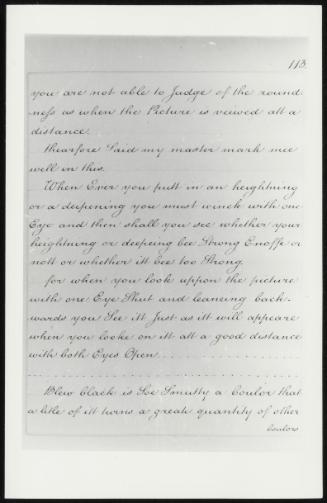 113.
you are not able to Judge of the round-
ness as when the Picture is veiwed att a
distance.
thearfore Said my master mark mee
well in this.
When Ever you putt in an heightning
or a deepening you must winck with one
Eye and then shall you see whether your
heightning or deepeing bee Strong Enoffe or
nott or whether itt bee too Strong.
for when you look uppon the picture
with one Eye Shut and leaneing back-
wards you See itt Just as itt will appeare
when you looke on itt att a good distance
with both Eyes Open.
Blew black is Soe Smutty a Coulor that
a litle of itt turns a greate quantity of other
Coulors